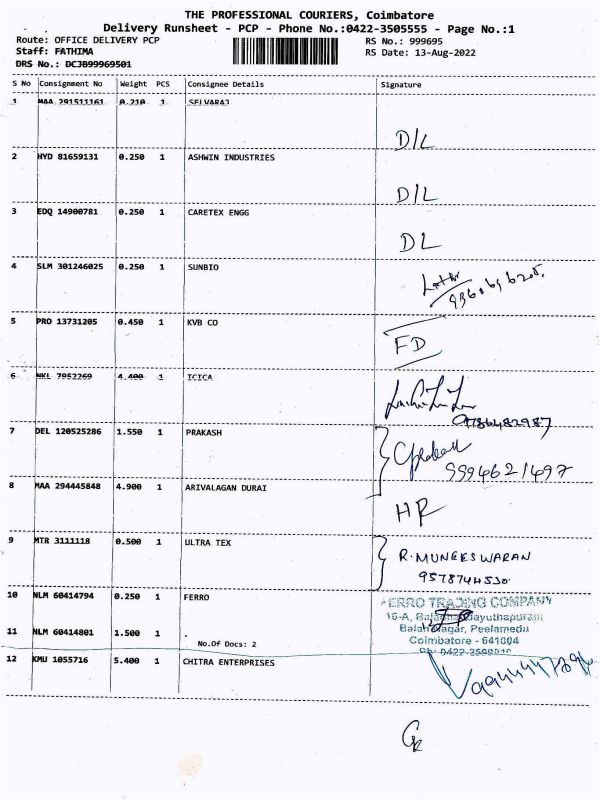 THE PROFESSIONAL COURIERS, Coimbatore
Delivery Runsheet - PCP - Phone No.:0422-3505555 - Page No.:1
Route: OFFICE DELIVERY PCP RS No.: 999695
Staff: FATHIMA RS Date: 13-Aug-2022
DRS No.: DCJB99969501
S No Consignment No Weight PCS Consignee Details Signature
1 MAA 291511161 0.210 1 SELVARAJ
D/L
2 HYD 81659131 0.250 1 ASHWIN INDUSTRIES
D/L
3 EDQ 14900781 0.250 1 CARETEX ENGG
DL
4 SLM 301246025 0.250 1 SUNBIO
5 PRO 13731205 0.450 1 KVB CO
FD
6 NKL 7952269 4.400 1 ICICA
9786482987
7 DEL 120525286 1.550 1 PRAKASH
9994621497
8 MAA 294445848 4.900 1 ARIVALAGAN DURAI
HR
9 MTR 3111118 0.500 1 ULTRA TEX
R. MUNEESWARAN
9578744530
10 NLM 60414794 0.250 1 FERRO
FERRO TRADING COMPANY
16-A,
11 NLM 60414801 1.500 1
Nagar, Peelamedu
No.Of Docs: 2
Coimbatore - 641004
12 KMU 1055716 5.400 1 CHITRA ENTERPRISES